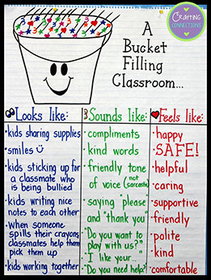 Crafting
Connections
A
Bucket
Filling
Classroom...
Looks like:
kids sharing supplies
smiles
kids sticking up for
a classmate who
is being bullied
kids writing nice
notes to each other
When someone
spills their crayons
classmates help them
pick them up
kids working together
Sounds like:
compliments
kind words
friendly tone
of voice (not
sarcastic)
saying please
and "thank you"
"Do you want to
play with us?"
"I like your...
"Do you need help?"
Feels like:
happy
SAFE!
helpful
caring
supportive
friendly
polite
kind
comfortable